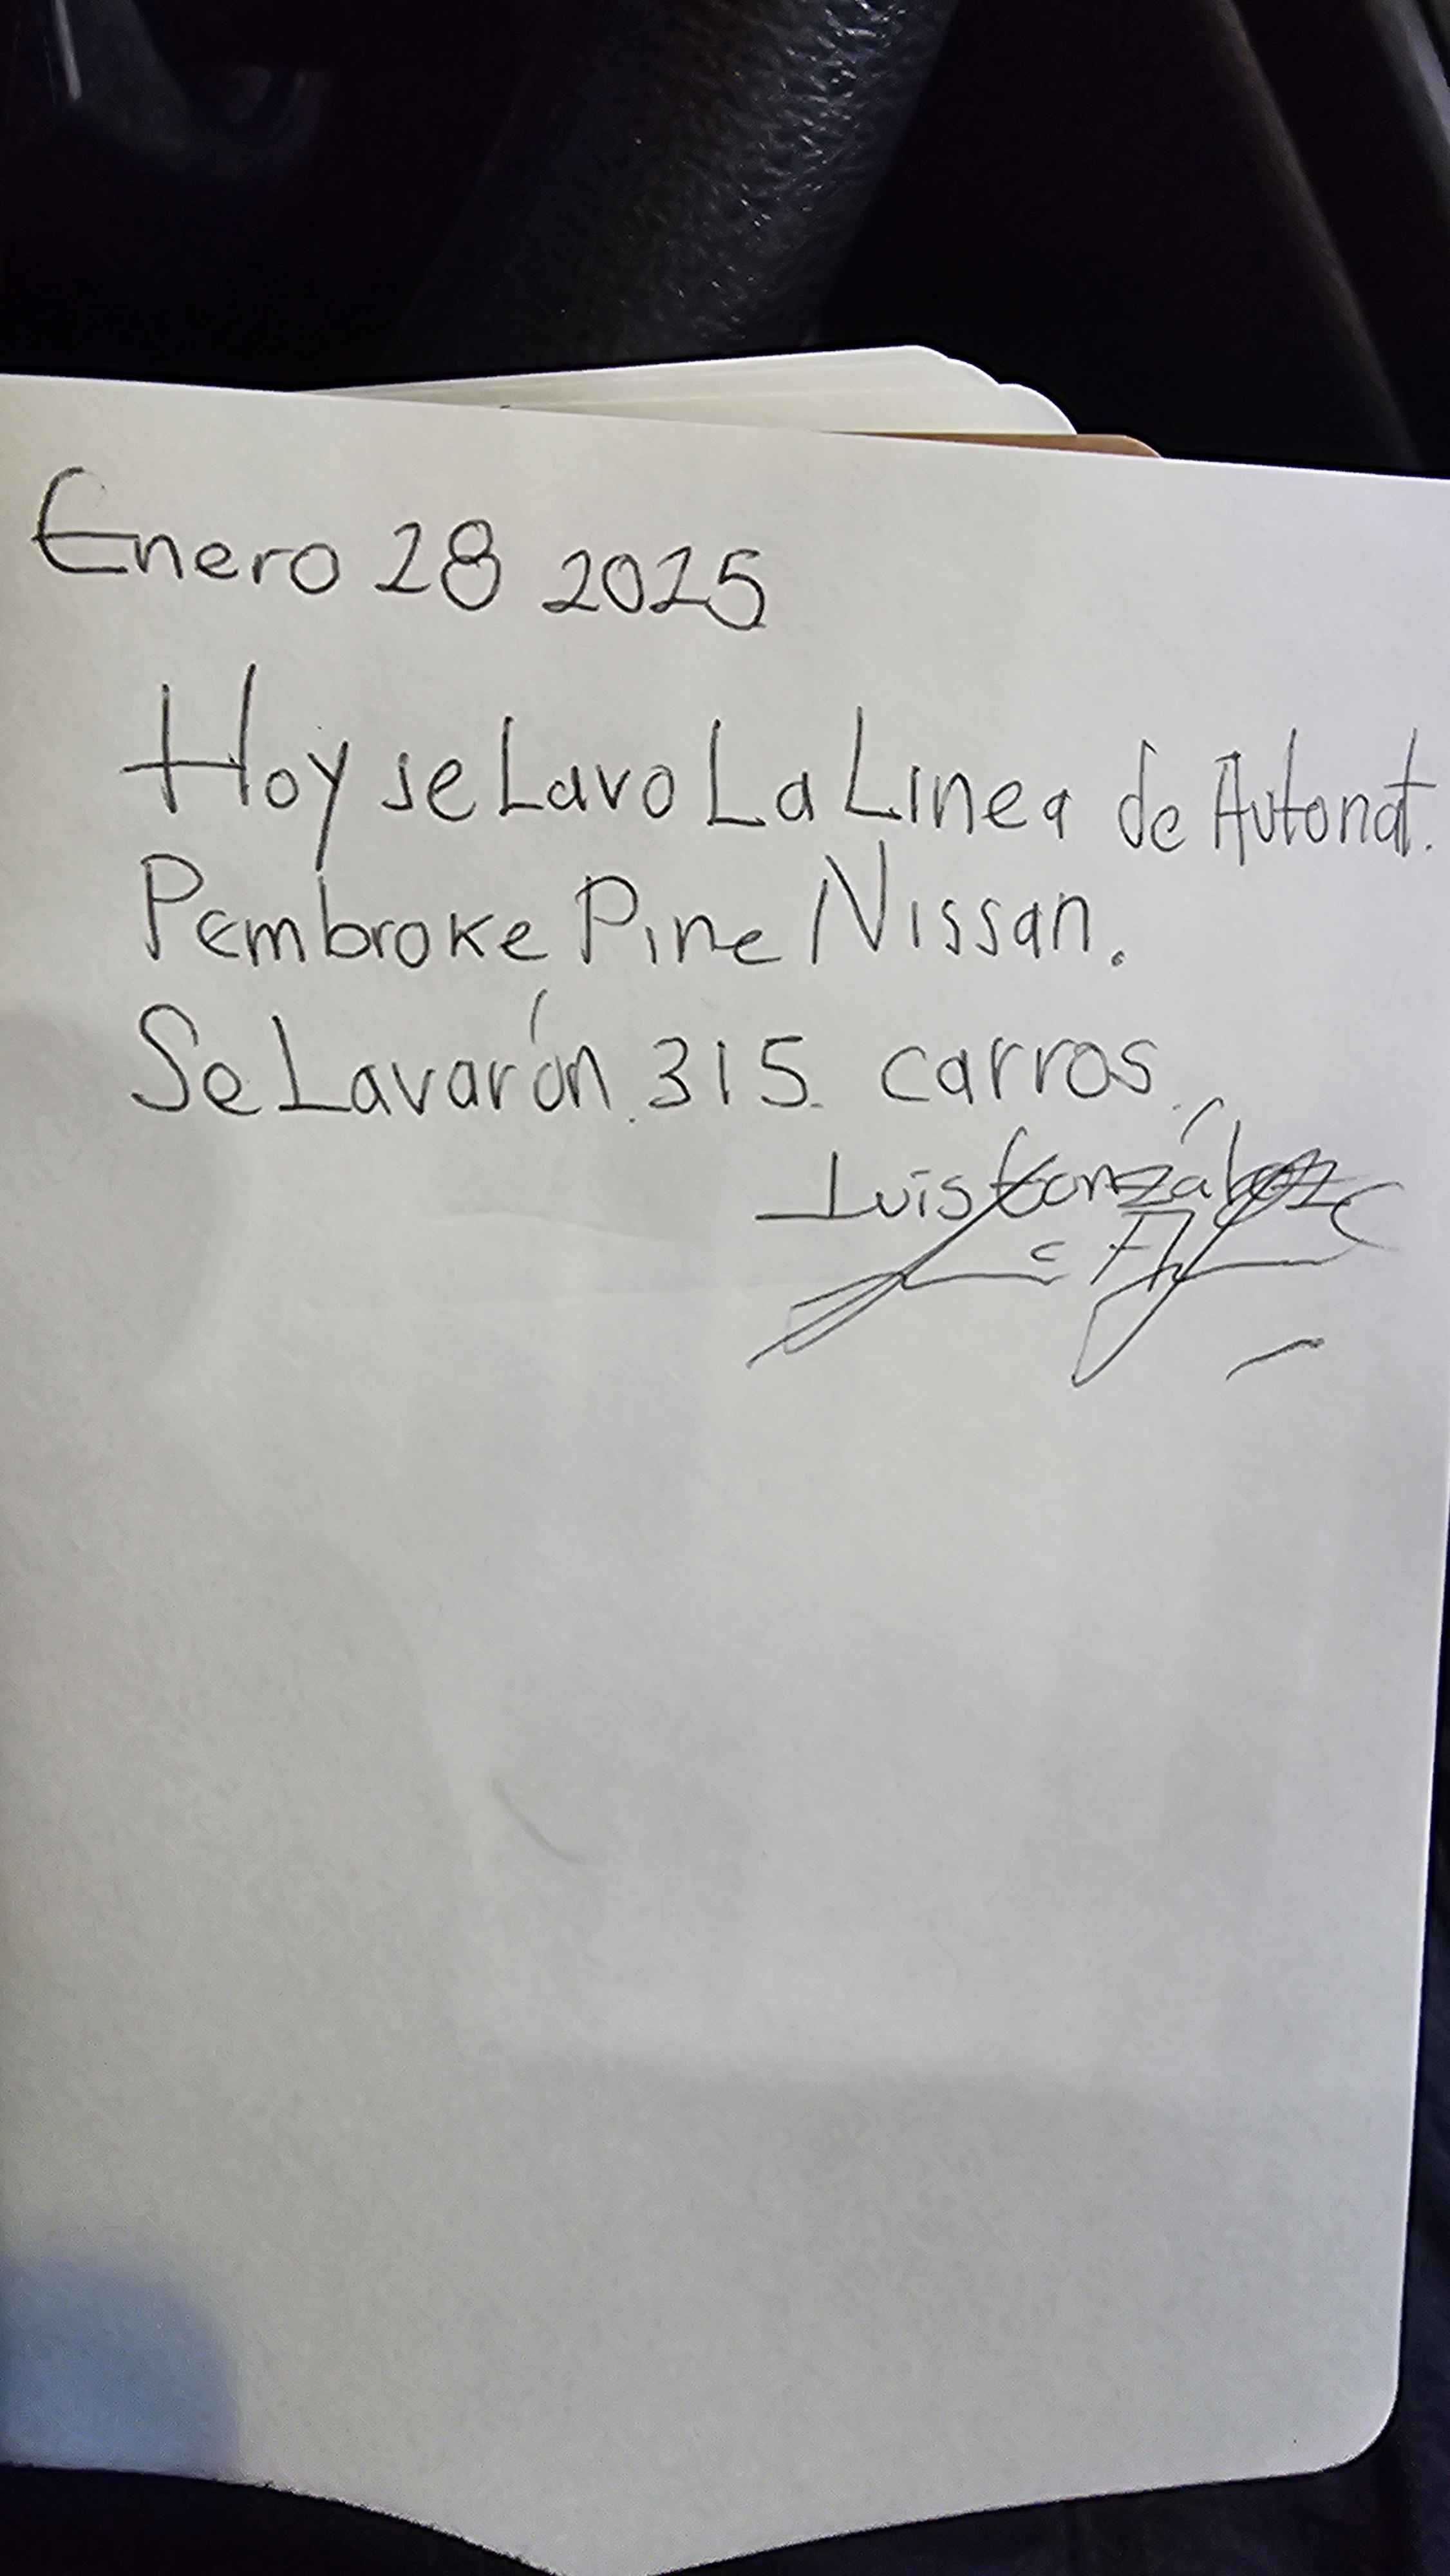 Enero 28 2025
Hoy se Lavo La Linea de Autonat.
Pembroke Pine Nissan.
Se Lavarón 315 carros.
Luis González